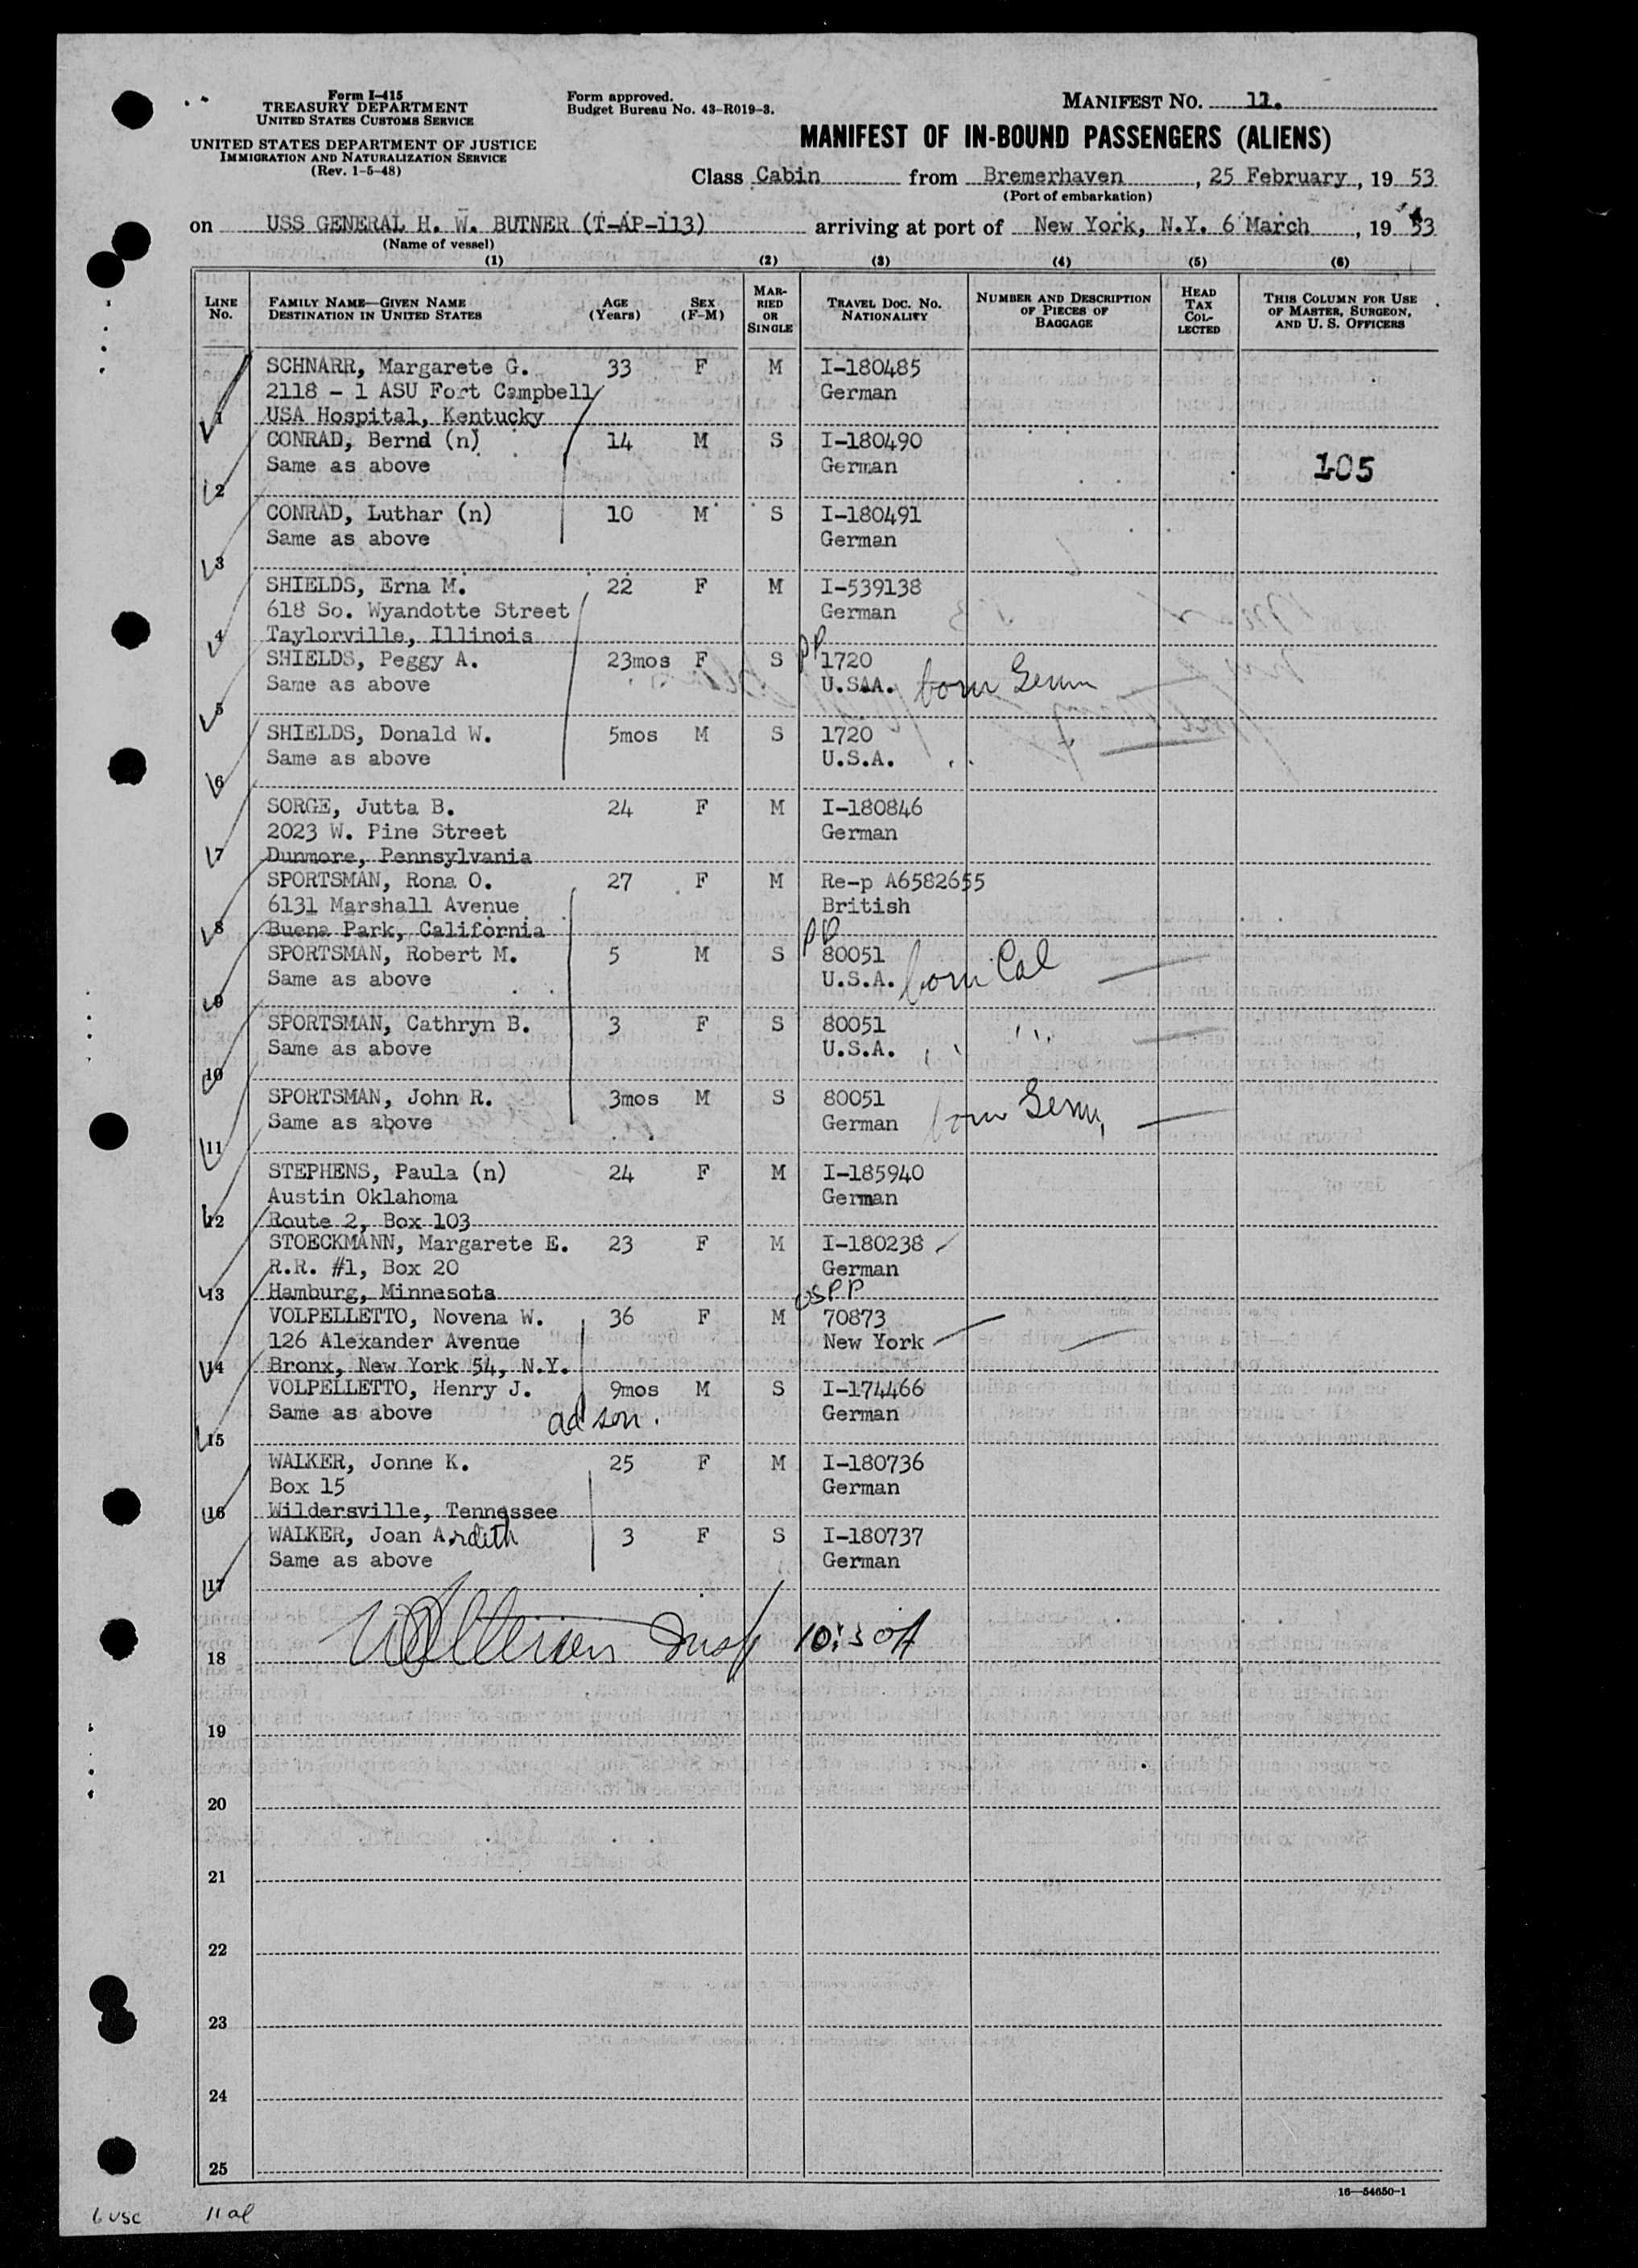 Form I-415
TREASURY DEPARTMENT
UNITED STATES CUSTOMS SERVICE
UNITED STATES DEPARTMENT OF JUSTICE
IMMIGRATION AND NATURALIZATION SERVICE
(Rev. 1-5-48)
Form approved.
Budget Bureau No. 43-R019-3.
MANIFEST NO. 11.
MANIFEST OF IN-BOUND PASSENGERS (ALIENS)
Class Cabin from Bremerhaven, 25 February, 19 53
(Port of embarkation)
on USS GENERAL H. W. BUTNER (T-AP-113) arriving at port of New York, N.Y. 6 March, 19 53
(Name of vessel)
(1) (2) (3) (4) (5) (6)
LINE No. FAMILY NAME—GIVEN NAME DESTINATION IN UNITED STATES AGE (Years) SEX (F-M) MARRIED OR SINGLE TRAVEL DOC. NO. NATIONALITY NUMBER AND DESCRIPTION OF PIECES OF BAGGAGE HEAD TAX COLLECTED THIS COLUMN FOR USE OF MASTER, SURGEON, AND U. S. OFFICERS
SCHNARR, Margarete G. 33 F M I-180485
2118 - 1 ASU Fort Campbell German
1 USA Hospital, Kentucky
CONRAD, Bernd (n) 14 M S I-180490
Same as above German 105
2
CONRAD, Luthar (n) 10 M S I-180491
Same as above German
3
SHIELDS, Erna M. 22 F M I-539138
618 So. Wyandotte Street German
4 Taylorville, Illinois
SHIELDS, Peggy A. 23mos F S PP 1720
Same as above U.SAA. born Germ
5
SHIELDS, Donald W. 5mos M S 1720
Same as above U.S.A. " "
6
SORGE, Jutta B. 24 F M I-180846
2023 W. Pine Street German
7 Dunmore, Pennsylvania
SPORTSMAN, Rona O. 27 F M Re-p A6582655
6131 Marshall Avenue British
8 Buena Park, California
SPORTSMAN, Robert M. 5 M S PP 80051
Same as above U.S.A. born Cal
9
SPORTSMAN, Cathryn B. 3 F S 80051
Same as above U.S.A. " "
10
SPORTSMAN, John R. 3mos M S 80051
Same as above German born Germ,
11
STEPHENS, Paula (n) 24 F M I-185940
Austin Oklahoma German
12 Route 2, Box 103
STOECKMANN, Margarete E. 23 F M I-180238
R.R. #1, Box 20 German
13 Hamburg, Minnesota
VOLPELLETTO, Novena W. 36 F M USPP 70873
126 Alexander Avenue New York
14 Bronx, New York 54, N.Y.
VOLPELLETTO, Henry J. 9mos M S I-174466
Same as above ad son. German
15
WALKER, Jonne K. 25 F M I-180736
Box 15 German
16 Wildersville, Tennessee
WALKER, Joan Ardith 3 F S I-180737
Same as above German
17
18 Insp
19
20
21
22
23
24
25
16—54650-1
6 USC 11 al